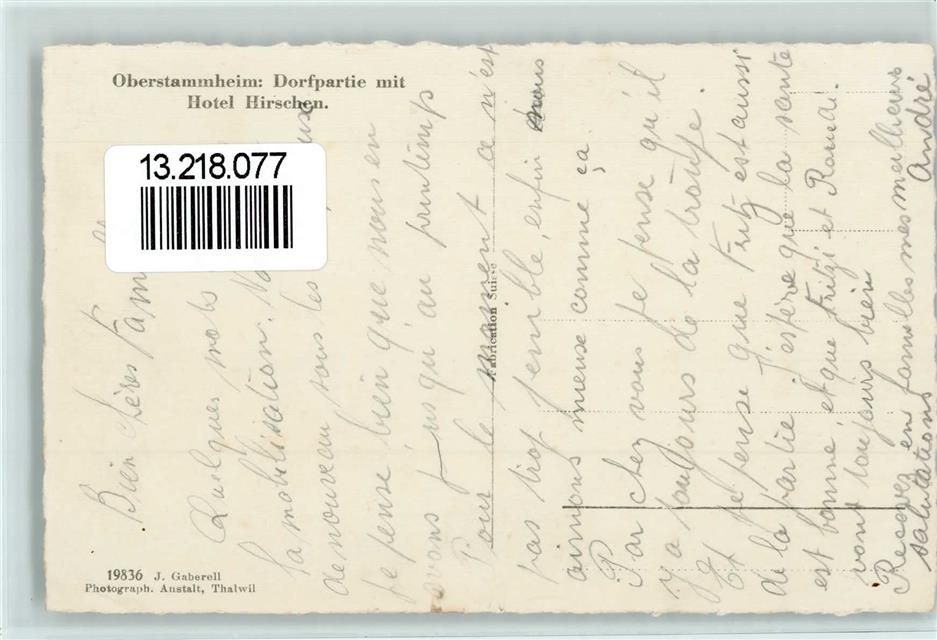 Oberstammheim: Dorfpartie mit
Hotel Hirschen.
13.218.077
Bien chères
Quelques mots
la mobilisation.
de nouveau tous les
je pense bien que nous en
avons jusqu'au printemps
Pour le moment ce n'est
pas trop terrible, enfin nous
aimons mieux comme ça
Par chez vous je pense qu'il
y a toujours de la troupe.
Et je pense que Fritz est aussi
de la partie j'espère que la santé
est bonne, et que Fritzi et
vont toujours bien
Recevez en familles mes meilleurs
salutations André
Fabrication Suisse
19836 J. Gaberell
Photograph. Anstalt, Thalwil